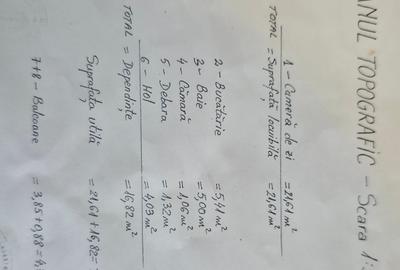 ANUL TOPOGRAFIC - Scara 1:
1 - Cameră de zi = 21,61 m²
TOTAL = Suprafață locuibilă = 21,61 m²
2 - Bucătărie = 5,41 m²
3 - Baie = 5,00 m²
4 - Cămară = 1,06 m²
5 - Debara = 1,32 m²
6 - Hol = 4,03 m²
TOTAL = Dependințe = 16,82 m²
Suprafața utilă = 21,61 + 16,82 =
7+8 - Balcoane = 3,85 + 0,88 = 4,